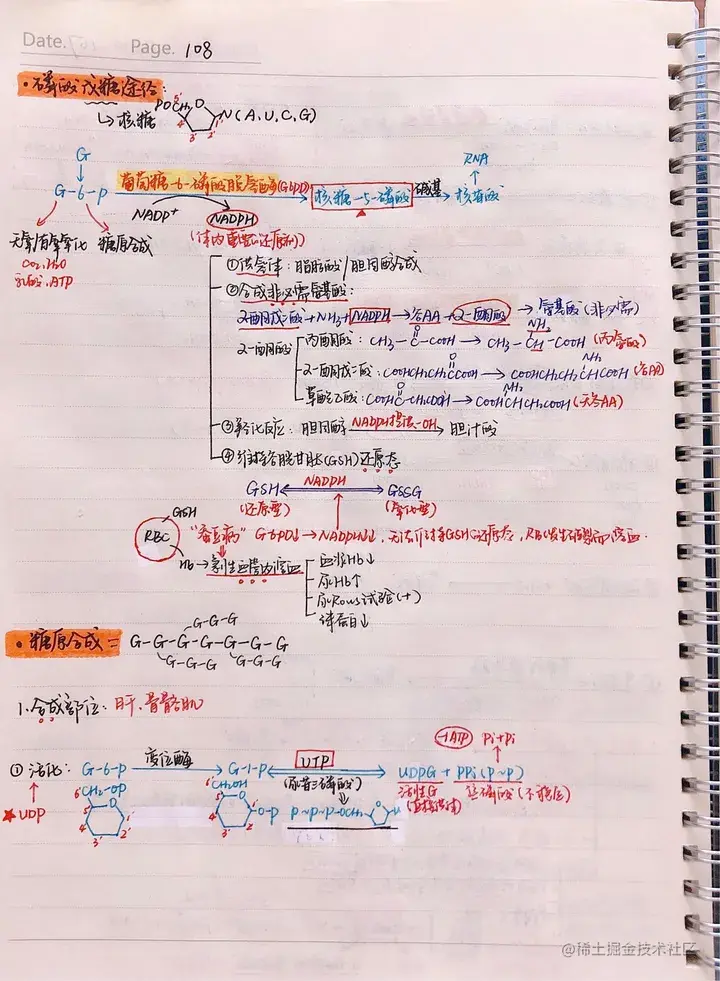 Date.
Page. 108
• 磷酸戊糖途径:
↳ 核糖
POCH₂ 5' O N(A、U、C、G)
4' 3' 2' 1'
G
↓
G-6-P 葡萄糖-6-磷酸脱氢酶(G6PD) 核糖-5-磷酸 碱基 核苷酸 → RNA
NADP⁺ NADPH
(体内重要的还原剂)
无氧/有氧氧化 糖原合成
CO₂、H₂O
乳酸、ATP
①供氢体:脂肪酸/胆固醇合成
②合成非必需氨基酸:
2-酮戊二酸+NH₃+NADPH→谷AA+2-酮酸→氨基酸(非必需)
2-酮酸
丙酮酸: CH₃-C-COOH → CH₃-CH-COOH (丙氨酸)
O NH₂
2-酮戊二酸: COOHCH₂CH₂CCOOH → COOHCH₂CH₂CHCOOH (谷AA)
O NH₂
草酰乙酸: COOHCCH₂COOH → COOHCHCH₂COOH (天冬AA)
O NH₂
③羟化反应: 胆固醇 NADPH提供-OH 胆汁酸
④维持谷胱甘肽(GSH)还原态
NADPH
GSH GSSG
(还原型) (氧化型)
RBC GSH
"蚕豆病" G6PD↓→NADPH↓↓,无法维持GSH还原态,RBC发生破裂而溶血.
Hb→急性血管内溶血
血浆Hb↓
尿Hb↑
尿Rous试验(+)
结合珠蛋白↓
• 糖原合成=
G-G-G
G-G-G-G-G-G-G
G-G-G G-G-G
1.合成部位: 肝、骨骼肌
-1ATP Pi+Pi
① 活化: G-6-P 变位酶 G-1-P UTP UDPG + PPi(P~P)
(尿苷三磷酸)
活性G 焦磷酸(不稳定)
★UDP
6'CH₂-OP 6'CH₂OH O-P P~P~P-OCH₂